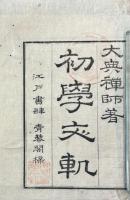 大典禪師著
初學文軌
江戸書肆 青藜閣梓